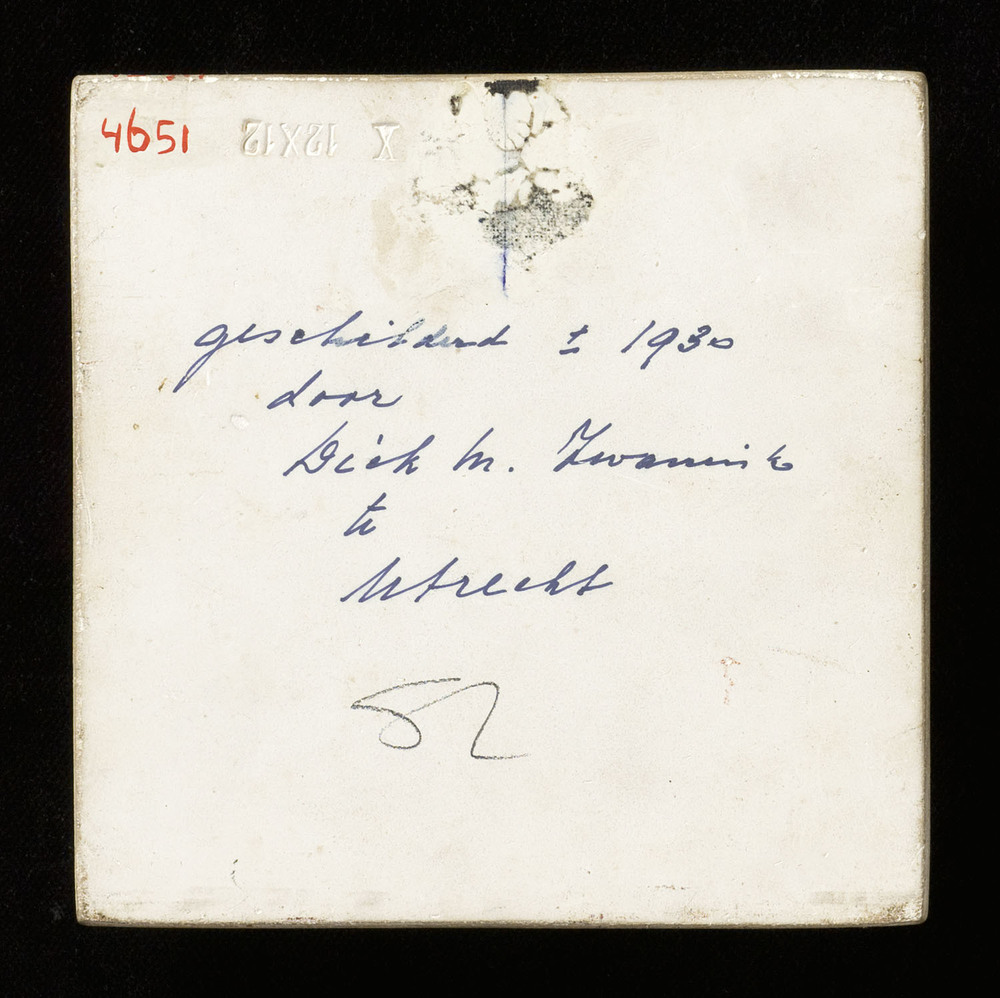 4651
12X12 X
geschilderd ± 1930
door
Dick M. Zwannink
te
Utrecht
82